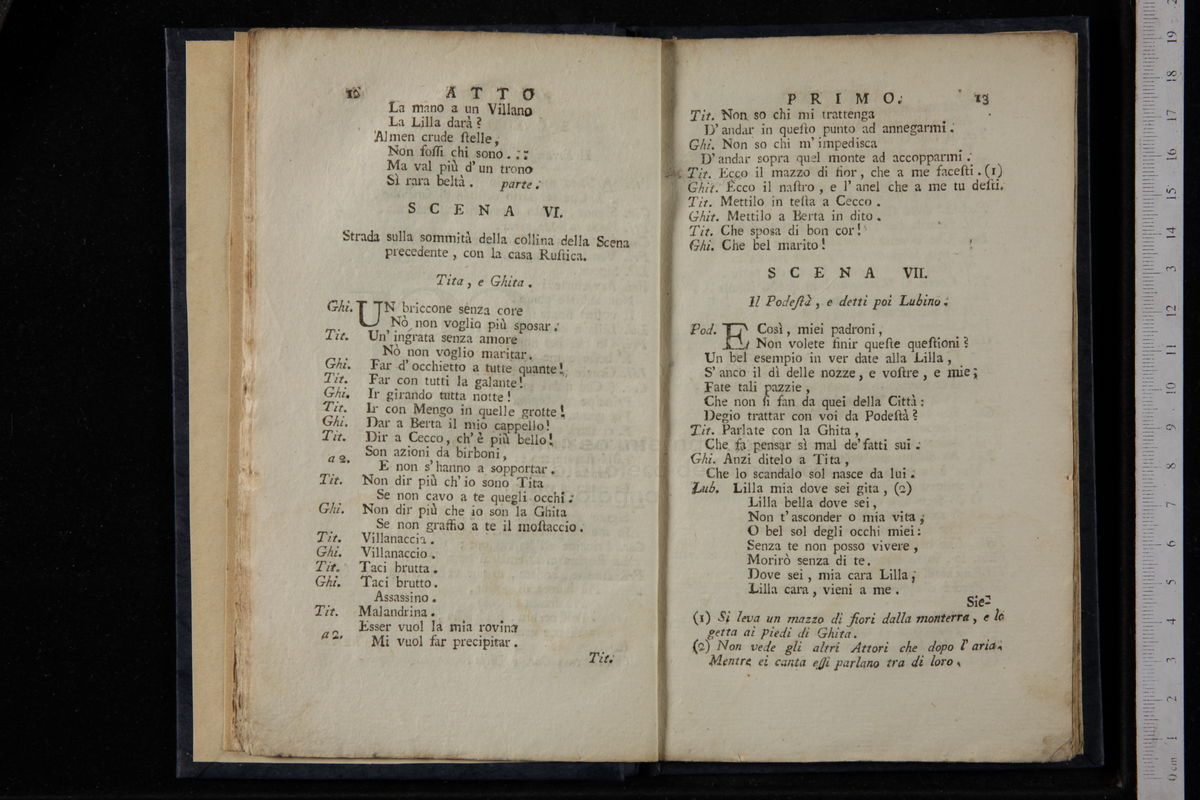 12 ATTO
La mano a un Villano
La Lilla darà?
Almen crude ſtelle,
Non foſſi chi sono. . ::
Ma val più d'un trono
Sì rara beltà. parte.
SCENA VI.
Strada sulla sommità della collina della Scena
precedente, con la casa Ruſtica.
Tita, e Ghita.
Ghi. UN briccone senza core
Nò non voglio più sposar.
Tit. Un' ingrata senza amore
Nò non voglio maritar.
Ghi. Far d'occhietto a tutte quante!
Tit. Far con tutti la galante!
Ghi. Ir girando tutta notte!
Tit. Ir con Mengo in quelle grotte!
Ghi. Dar a Berta il mio cappello!
Tit. Dir a Cecco, ch'è più bello!
a 2. Son azioni da birboni,
E non s'hanno a sopportar.
Tit. Non dir più ch'io sono Tita
Se non cavo a te quegli occhi.
Ghi. Non dir più che io son la Ghita
Se non graffio a te il moſtaccio.
Tit. Villanaccia.
Ghi. Villanaccio.
Tit. Taci brutta.
Ghi. Taci brutto.
Assassino.
Tit. Malandrina.
a 2. Esser vuol la mia rovina
Mi vuol far precipitar.
Tit.
PRIMO. 13
Tit. Non so chi mi trattenga
D'andar in queſto punto ad annegarmi.
Ghi. Non so chi m'impedisca
D'andar sopra quel monte ad accopparmi.
Tit. Ecco il mazzo di fior, che a me faceſti. (1)
Ghit. Ecco il naſtro, e l'anel che a me tu deſti.
Tit. Mettilo in teſta a Cecco.
Ghit. Mettilo a Berta in dito.
Tit. Che sposa di bon cor!
Ghi. Che bel marito!
SCENA VII.
Il Podeſtà, e detti poi Lubino.
Pod. E Così, miei padroni,
Non volete finir queſte queſtioni?
Un bel esempio in ver date alla Lilla,
S'anco il dì delle nozze, e voſtre, e mie;
Fate tali pazzie,
Che non ſi fan da quei della Città:
Degio trattar con voi da Podeſtà?
Tit. Parlate con la Ghita,
Che fa pensar sì mal de'fatti sui.
Ghi. Anzi ditelo a Tita,
Che lo scandalo sol nasce da lui.
Lub. Lilla mia dove sei gita, (2)
Lilla bella dove sei,
Non t'asconder o mia vita,
O bel sol degli occhi miei:
Senza te non posso vivere,
Morirò senza di te.
Dove sei, mia cara Lilla,
Lilla cara, vieni a me.
Sie-
(1) Si leva un mazzo di fiori dalla monterra, e lo
getta ai piedi di Ghita.
(2) Non vede gli altri Attori che dopo l'aria.
Mentre ei canta eſſi parlano tra di loro.